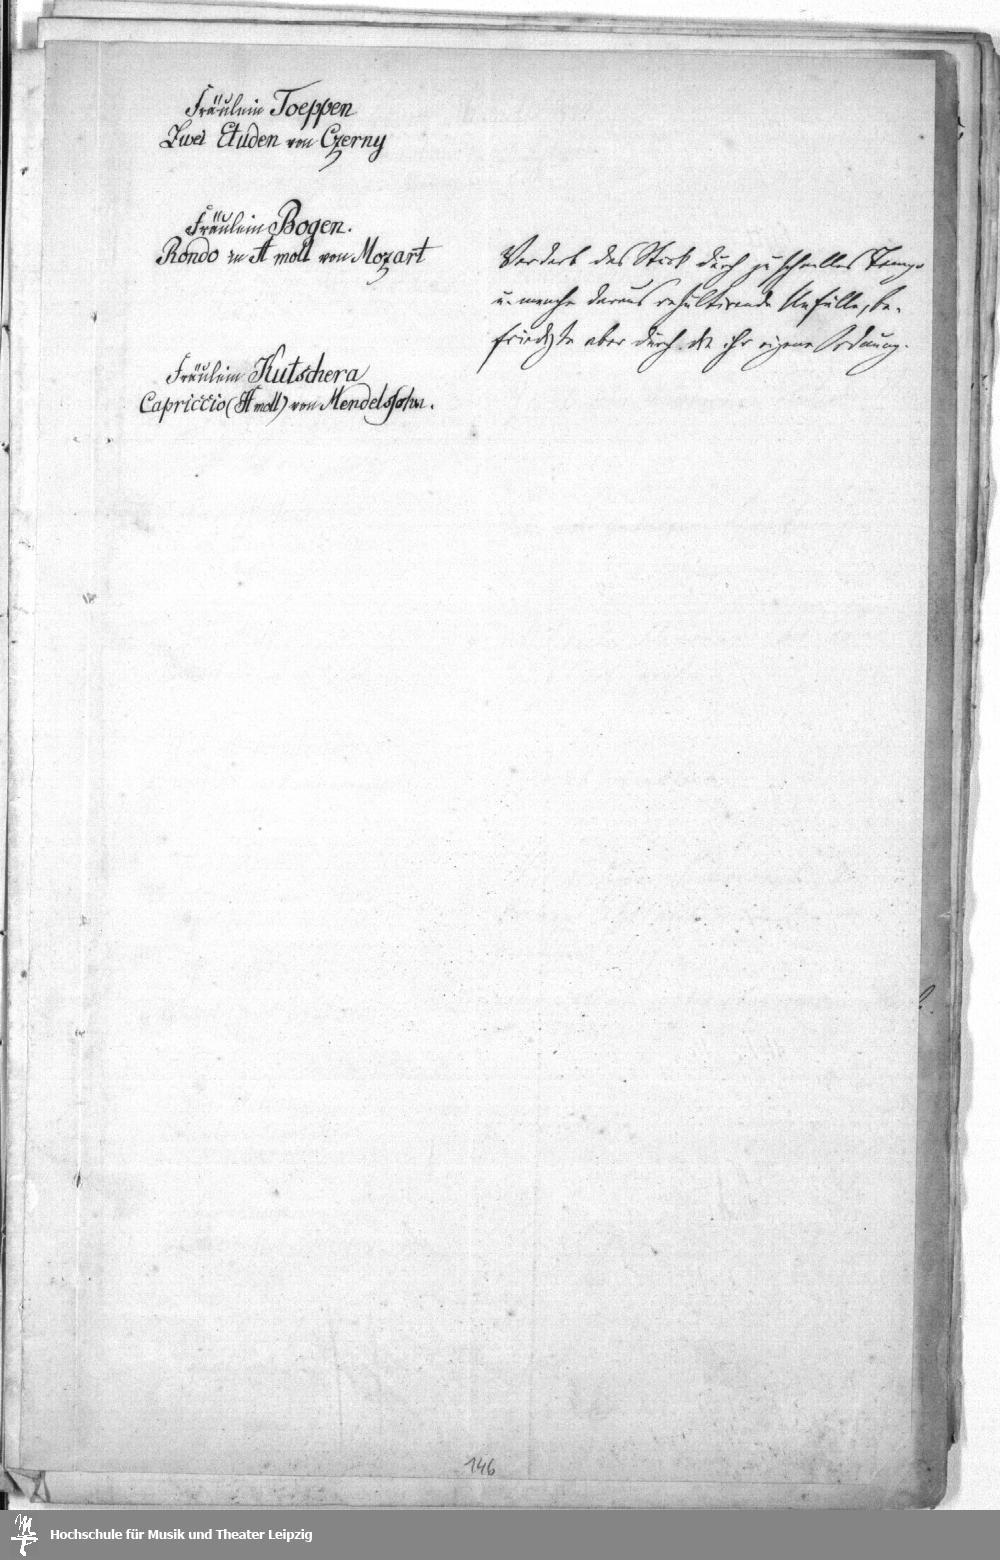 Fräulein Toeppen
Zwei Etuden von Czerny
Fräulein Bogen.
Rondo in A moll von Mozart
Verdarb das Stück durch zu schnelles Tempo
u. manche daraus resultirende Unfälle, be-
friedigte aber durch die ihr eigene Ordnung.
Fräulein Kutschera
Capriccio (A moll) von Mendelssohn.
146
Hochschule für Musik und Theater Leipzig